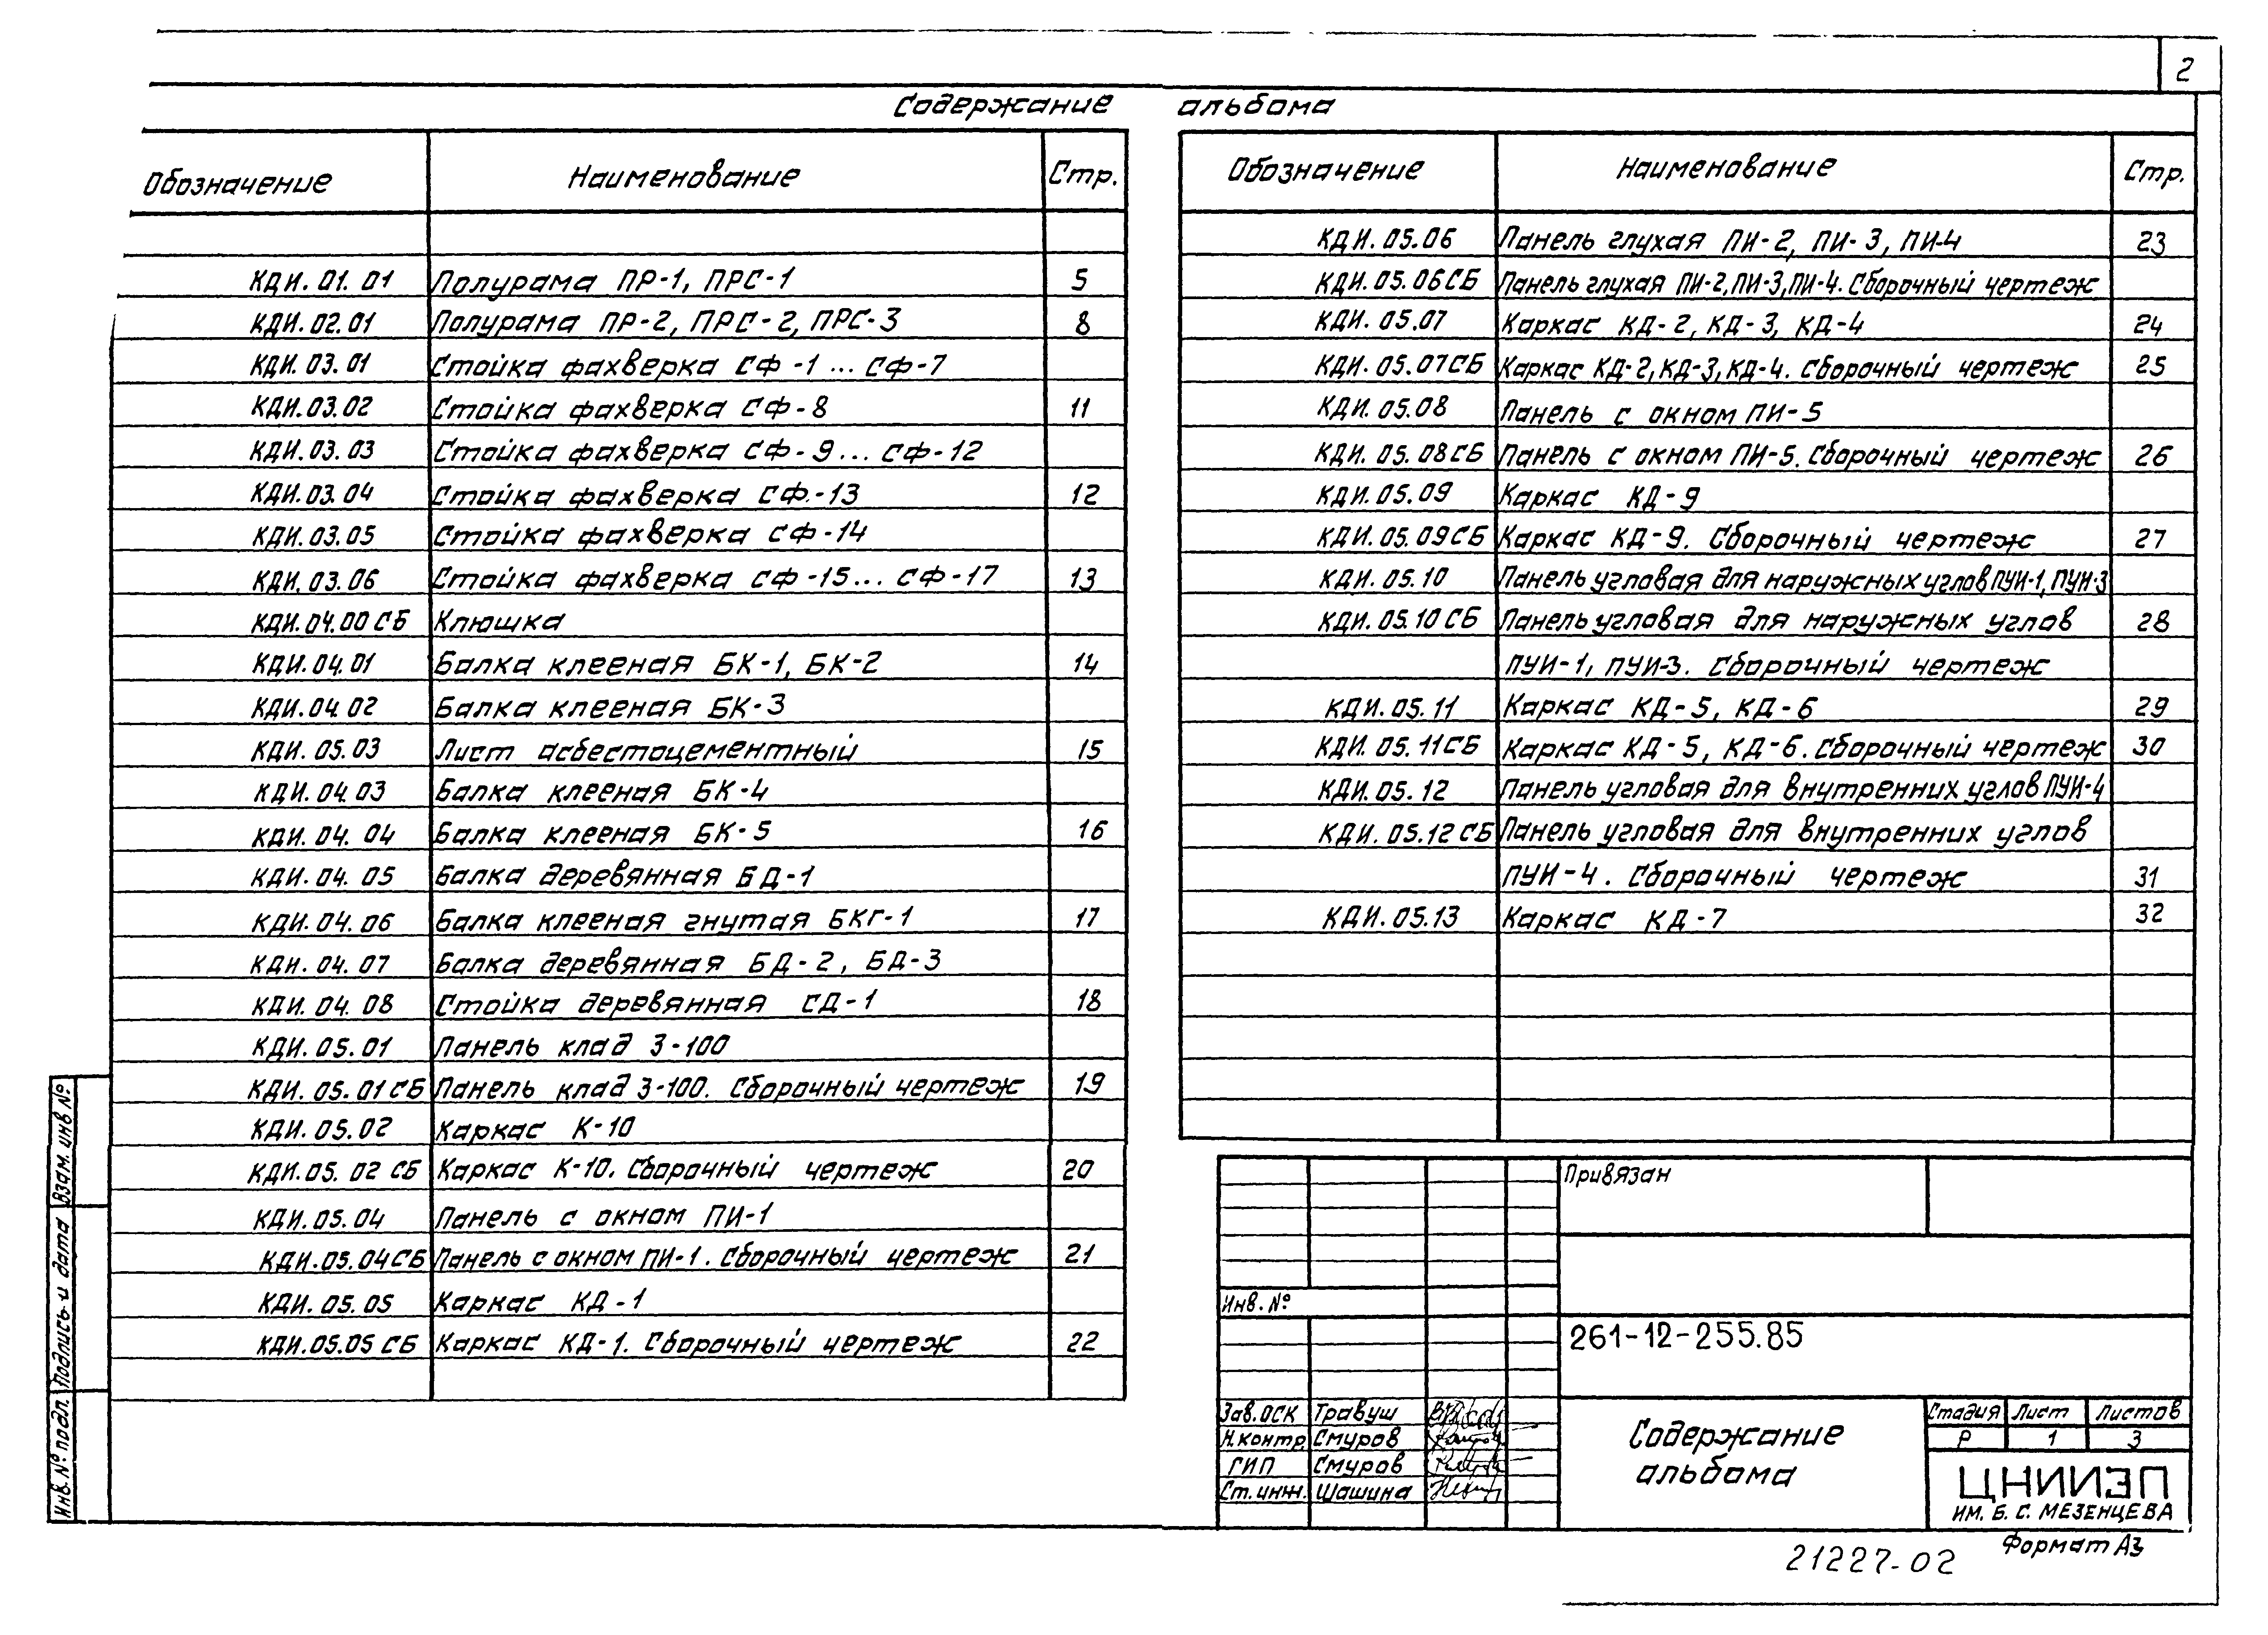 2
Содержание альбома
Обозначение Наименование Стр.
КДИ.01.01 Полурама ПР-1, ПРС-1 5
КДИ.02.01 Полурама ПР-2, ПРС-2, ПРС-3 8
КДИ.03.01 Стойка фахверка СФ-1...СФ-7
КДИ.03.02 Стойка фахверка СФ-8 11
КДИ.03.03 Стойка фахверка СФ-9...СФ-12
КДИ.03.04 Стойка фахверка СФ-13 12
КДИ.03.05 Стойка фахверка СФ-14
КДИ.03.06 Стойка фахверка СФ-15...СФ-17 13
КДИ.04.00 СБ Клюшка
КДИ.04.01 Балка клееная БК-1, БК-2 14
КДИ.04.02 Балка клееная БК-3
КДИ.05.03 Лист асбестоцементный 15
КДИ.04.03 Балка клееная БК-4
КДИ.04.04 Балка клееная БК-5 16
КДИ.04.05 Балка деревянная БД-1
КДИ.04.06 Балка клееная гнутая БКГ-1 17
КДИ.04.07 Балка деревянная БД-2, БД-3
КДИ.04.08 Стойка деревянная СД-1 18
КДИ.05.01 Панель клад 3-100
КДИ.05.01 СБ Панель клад 3-100. Сборочный чертеж 19
КДИ.05.02 Каркас К-10
КДИ.05.02 СБ Каркас К-10. Сборочный чертеж 20
КДИ.05.04 Панель с окном ПИ-1
КДИ.05.04 СБ Панель с окном ПИ-1. Сборочный чертеж 21
КДИ.05.05 Каркас КД-1
КДИ.05.05 СБ Каркас КД-1. Сборочный чертеж 22
Обозначение Наименование Стр.
КДИ.05.06 Панель глухая ПИ-2, ПИ-3, ПИ-4 23
КДИ.05.06 СБ Панель глухая ПИ-2, ПИ-3, ПИ-4. Сборочный чертеж
КДИ.05.07 Каркас КД-2, КД-3, КД-4 24
КДИ.05.07 СБ Каркас КД-2, КД-3, КД-4. Сборочный чертеж 25
КДИ.05.08 Панель с окном ПИ-5
КДИ.05.08 СБ Панель с окном ПИ-5. Сборочный чертеж 26
КДИ.05.09 Каркас КД-9
КДИ.05.09 СБ Каркас КД-9. Сборочный чертеж 27
КДИ.05.10 Панель угловая для наружных углов ПУИ-1, ПУИ-3
КДИ.05.10 СБ Панель угловая для наружных углов 28
ПУИ-1, ПУИ-3. Сборочный чертеж
КДИ.05.11 Каркас КД-5, КД-6 29
КДИ.05.11 СБ Каркас КД-5, КД-6. Сборочный чертеж 30
КДИ.05.12 Панель угловая для внутренних углов ПУИ-4
КДИ.05.12 СБ Панель угловая для внутренних углов
ПУИ-4. Сборочный чертеж 31
КДИ.05.13 Каркас КД-7 32
Привязан
Инв. №
261-12-255.85
Зав. ОСК Травуш
Н.контр Смуров
ГИП Смуров
Ст. инж. Шашина
Содержание
альбома
Стадия Лист Листов
Р 1 3
ЦНИИЭП
ИМ. Б. С. МЕЗЕНЦЕВА
Формат А3
21227-02
Взам. инв №
Подпись и дата
Инв. № подл.